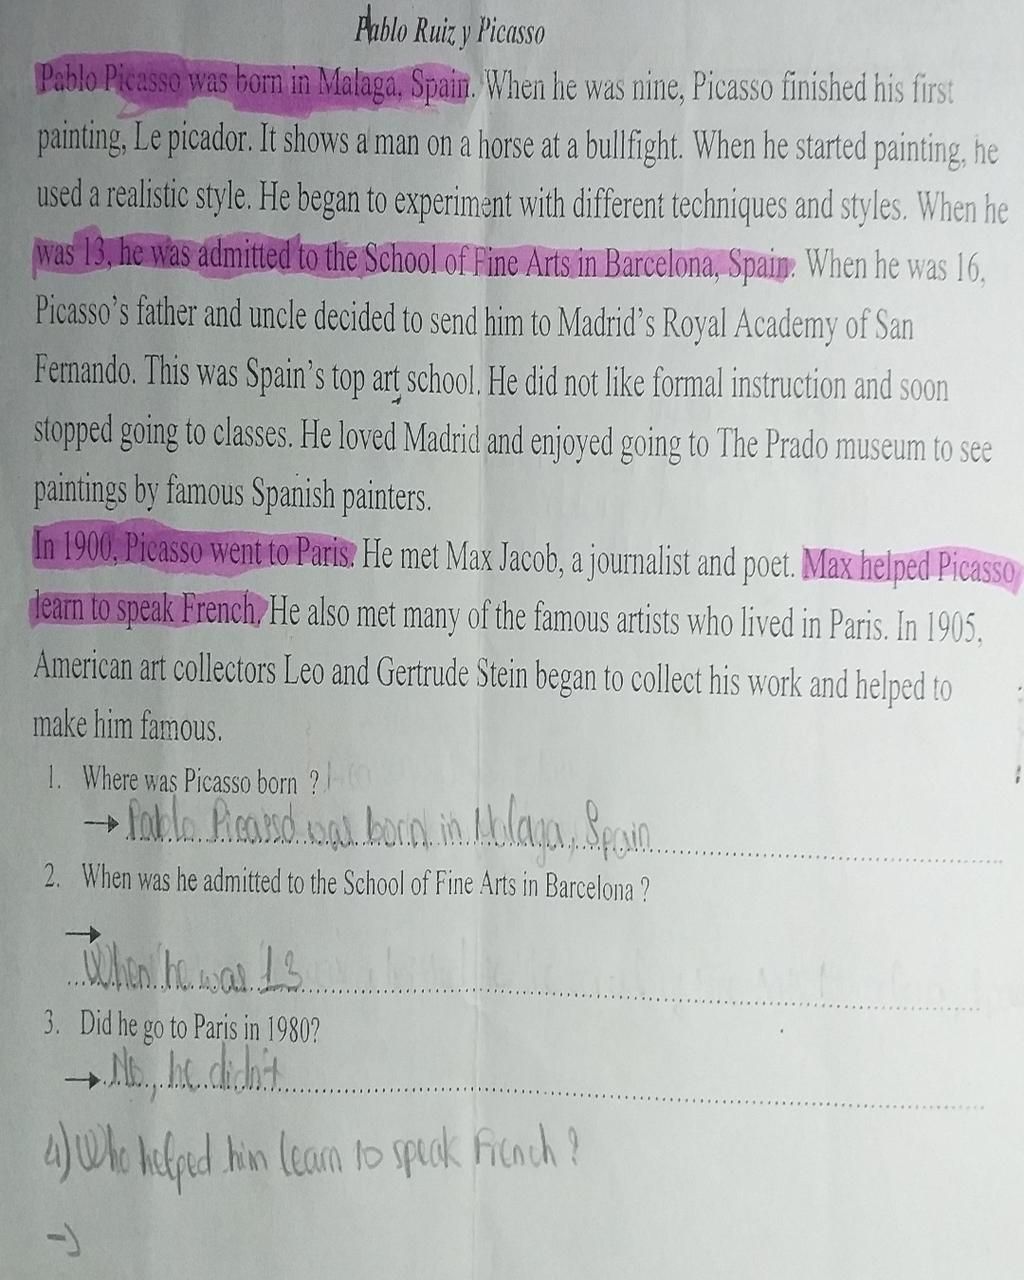 Pablo Ruiz y Picasso
Pablo Picasso was born in Malaga, Spain. When he was nine, Picasso finished his first
painting, Le picador. It shows a man on a horse at a bullfight. When he started painting, he
used a realistic style. He began to experiment with different techniques and styles. When he
was 13, he was admitted to the School of Fine Arts in Barcelona, Spain. When he was 16,
Picasso's father and uncle decided to send him to Madrid's Royal Academy of San
Fernando. This was Spain's top art school. He did not like formal instruction and soon
stopped going to classes. He loved Madrid and enjoyed going to The Prado museum to see
paintings by famous Spanish painters.
In 1900, Picasso went to Paris. He met Max Jacob, a journalist and poet. Max helped Picasso
learn to speak French. He also met many of the famous artists who lived in Paris. In 1905,
American art collectors Leo and Gertrude Stein began to collect his work and helped to
make him famous.
1. Where was Picasso born ?
→ Pablo Picasso was born in Malaga, Spain
2. When was he admitted to the School of Fine Arts in Barcelona ?
→
When he was 13
3. Did he go to Paris in 1980?
→ No, he didn't
4) Who helped him learn to speak French ?
→